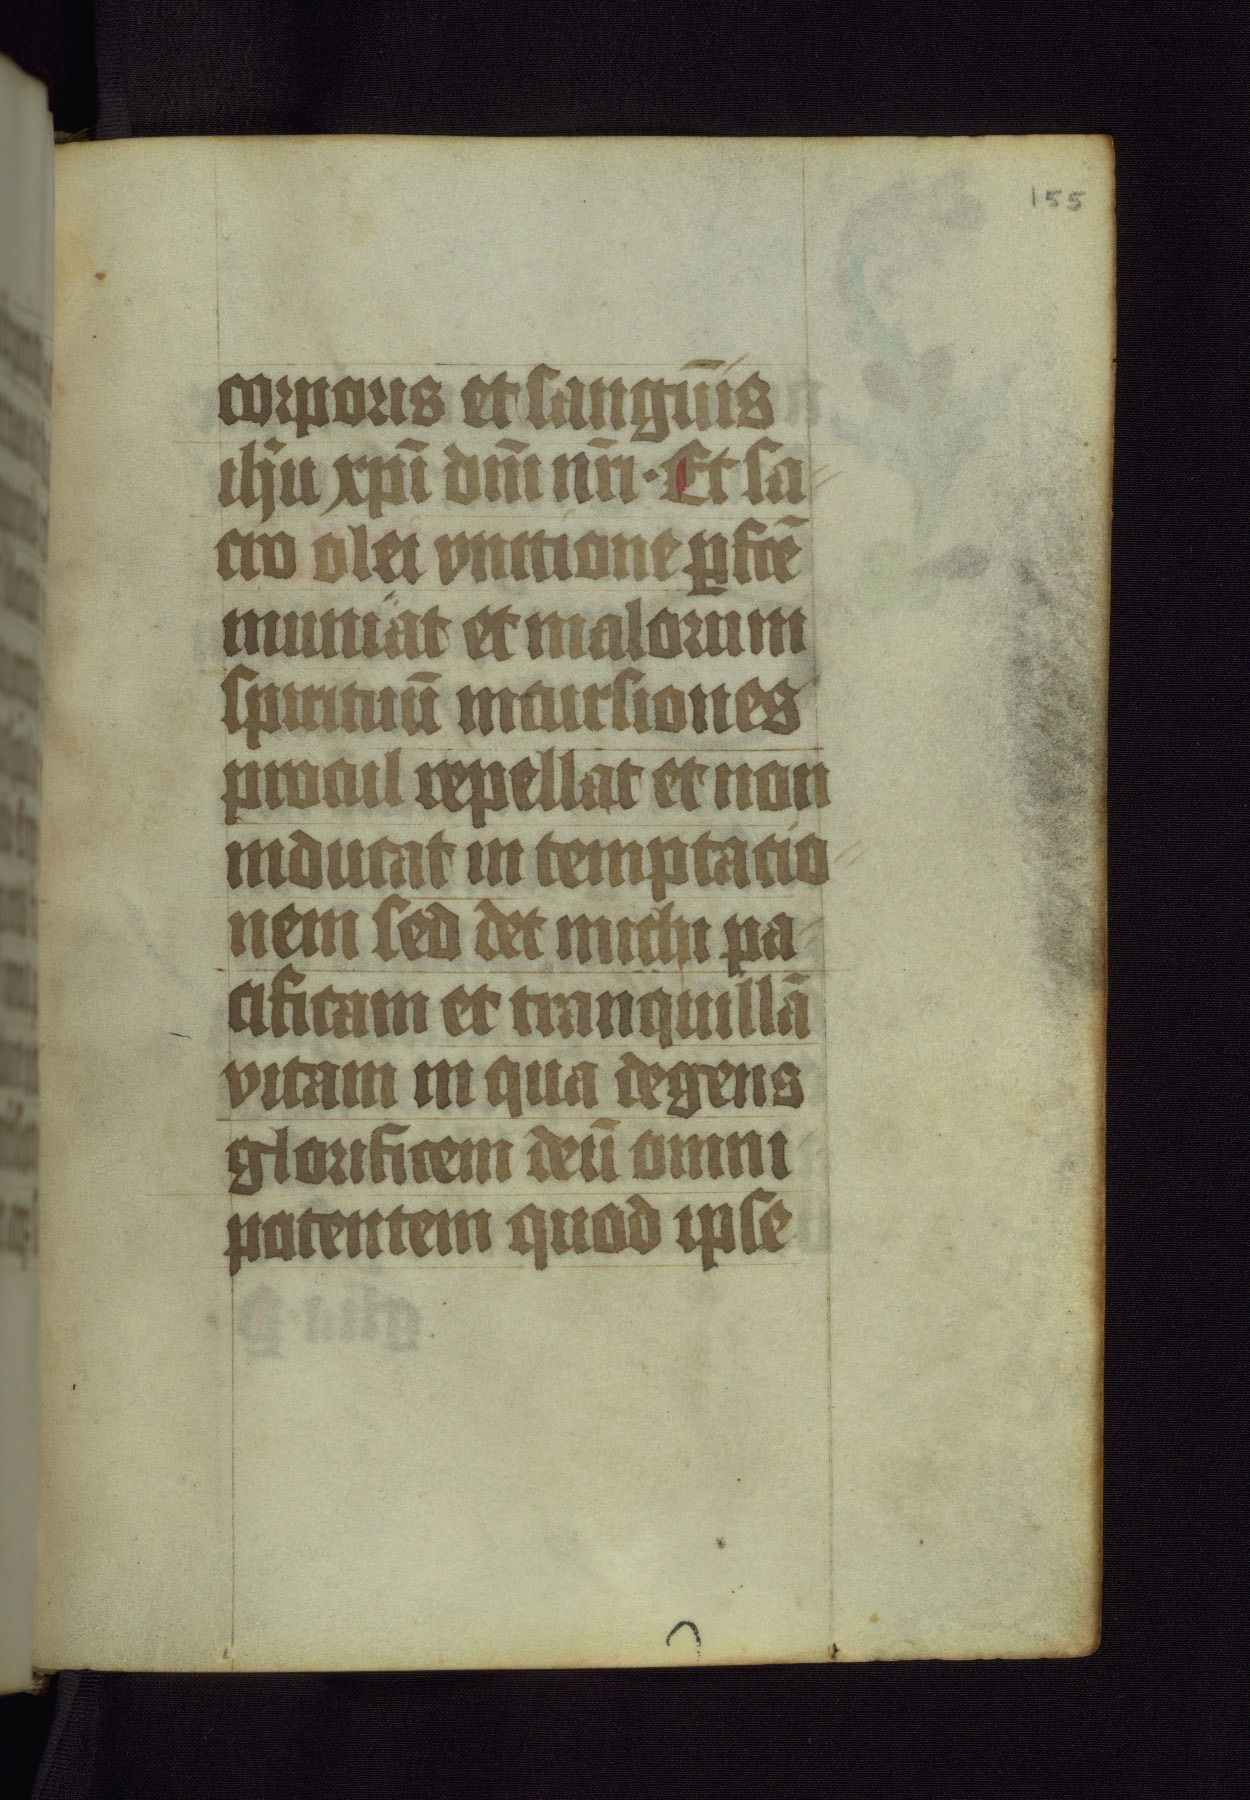 155
corporis et sangūīs
ihū xpī dnī nrī · Et sa⸗
cro olei vnctione pfcē
muniat et malorum
spirituū incursiones
procul repellat et non
inducat in temptatio⸗
nem sed det michi pa⸗
cificam et tranquillā
vitam in qua degens
glorificem deū omni
potentem quod ipse